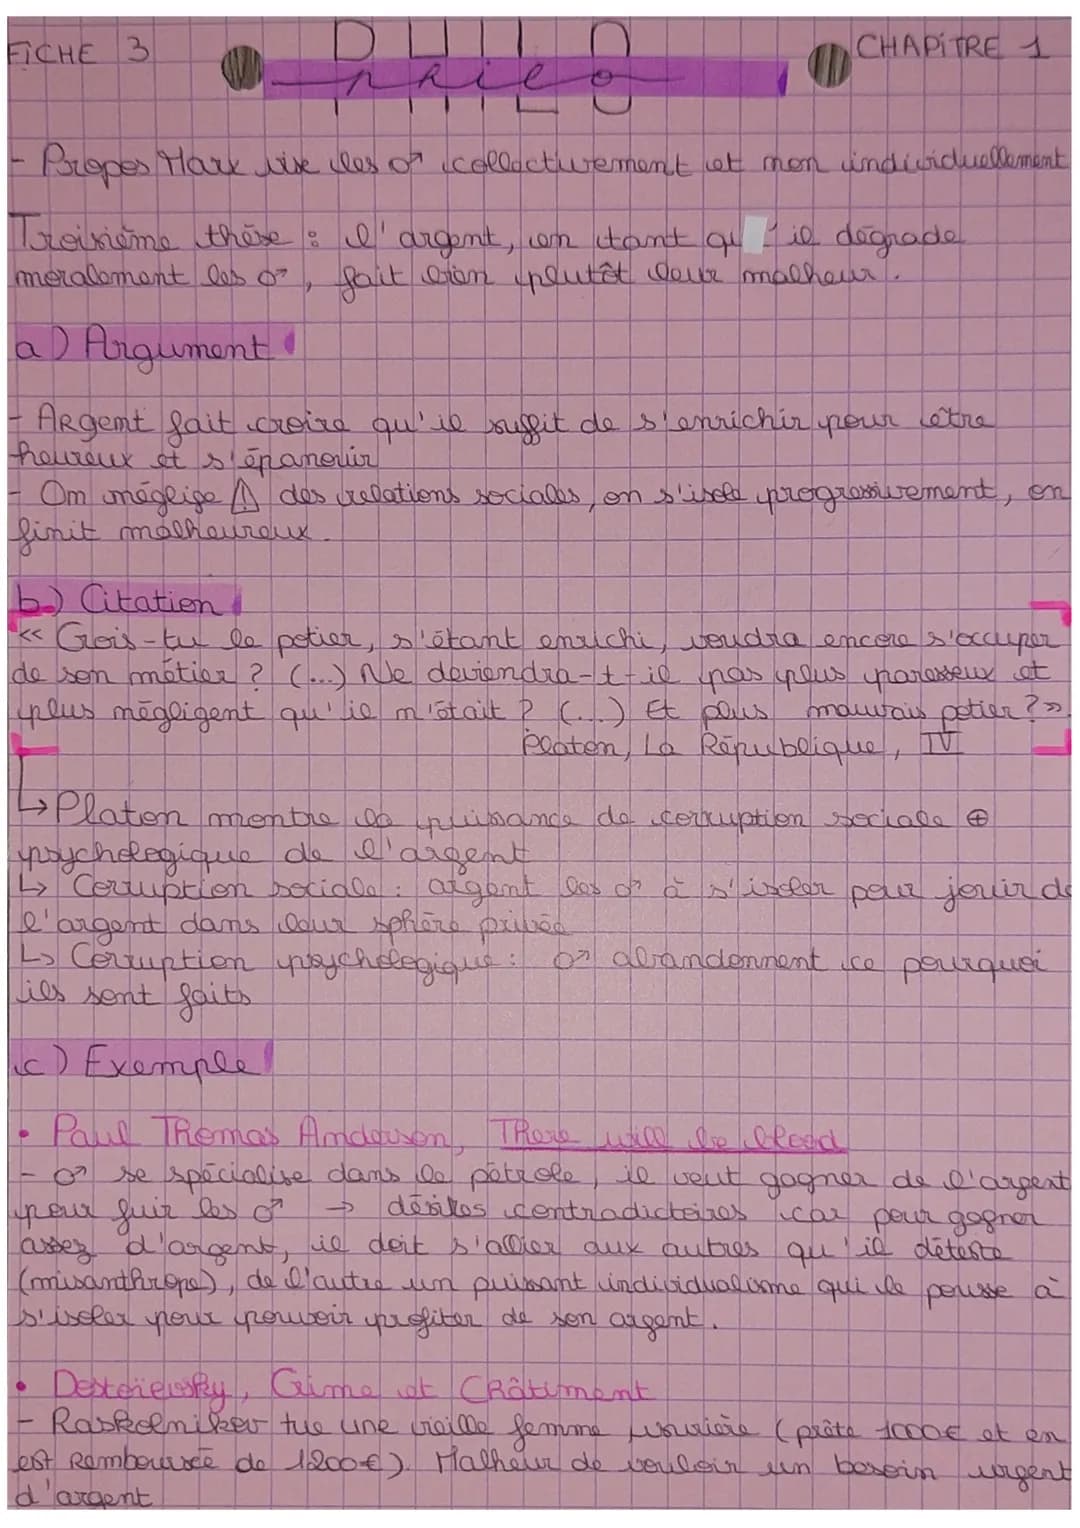 FICHE 3
PHILO
philo
CHAPITRE 1
- Propos Marx vise les ♂ collectivement et non individuellement
Troisième thèse : l'argent, en tant qu'il dégrade
moralement les ♂, fait bien plutôt leur malheur.
a) Argument
- Argent fait croire qu'il suffit de s'enrichir pour être
heureux et s'épanouir
- On néglige ⚠ des relations sociales, on s'isole progressivement, on
finit malheureux.
b) Citation
« Crois-tu le potier, s'étant enrichi, voudra encore s'occuper
de son métier ? (...) Ne deviendra-t-il pas plus paresseux et
plus négligent qu'il n'était ? (...) Et plus mauvais potier ? »
Platon, La République, IV
↳ Platon montre la puissance de corruption sociale ⊕
psychologique de l'argent
↳ Corruption sociale : argent les ♂ à s'isoler pour jouir de
l'argent dans leur sphère privée
↳ Corruption psychologique : ♂ abandonnent ce pourquoi
ils sont faits
c) Exemple
• Paul Thomas Anderson, There will be blood
- ♂ se spécialise dans le pétrole, il veut gagner de l'argent
pour fuir les ♂ → désires contradictoires car pour gagner
assez d'argent, il doit s'allier aux autres qu'il déteste
(misanthrope), de l'autre un puissant individualisme qui le pousse à
s'isoler pour pouvoir profiter de son argent.
• Dostoïevsky, Crime et Châtiment
- Raskolnikov tue une vieille femme usurière (prête 1000€ et en
est remboursée de 1200€). Malheur de vouloir un besoin urgent
d'argent